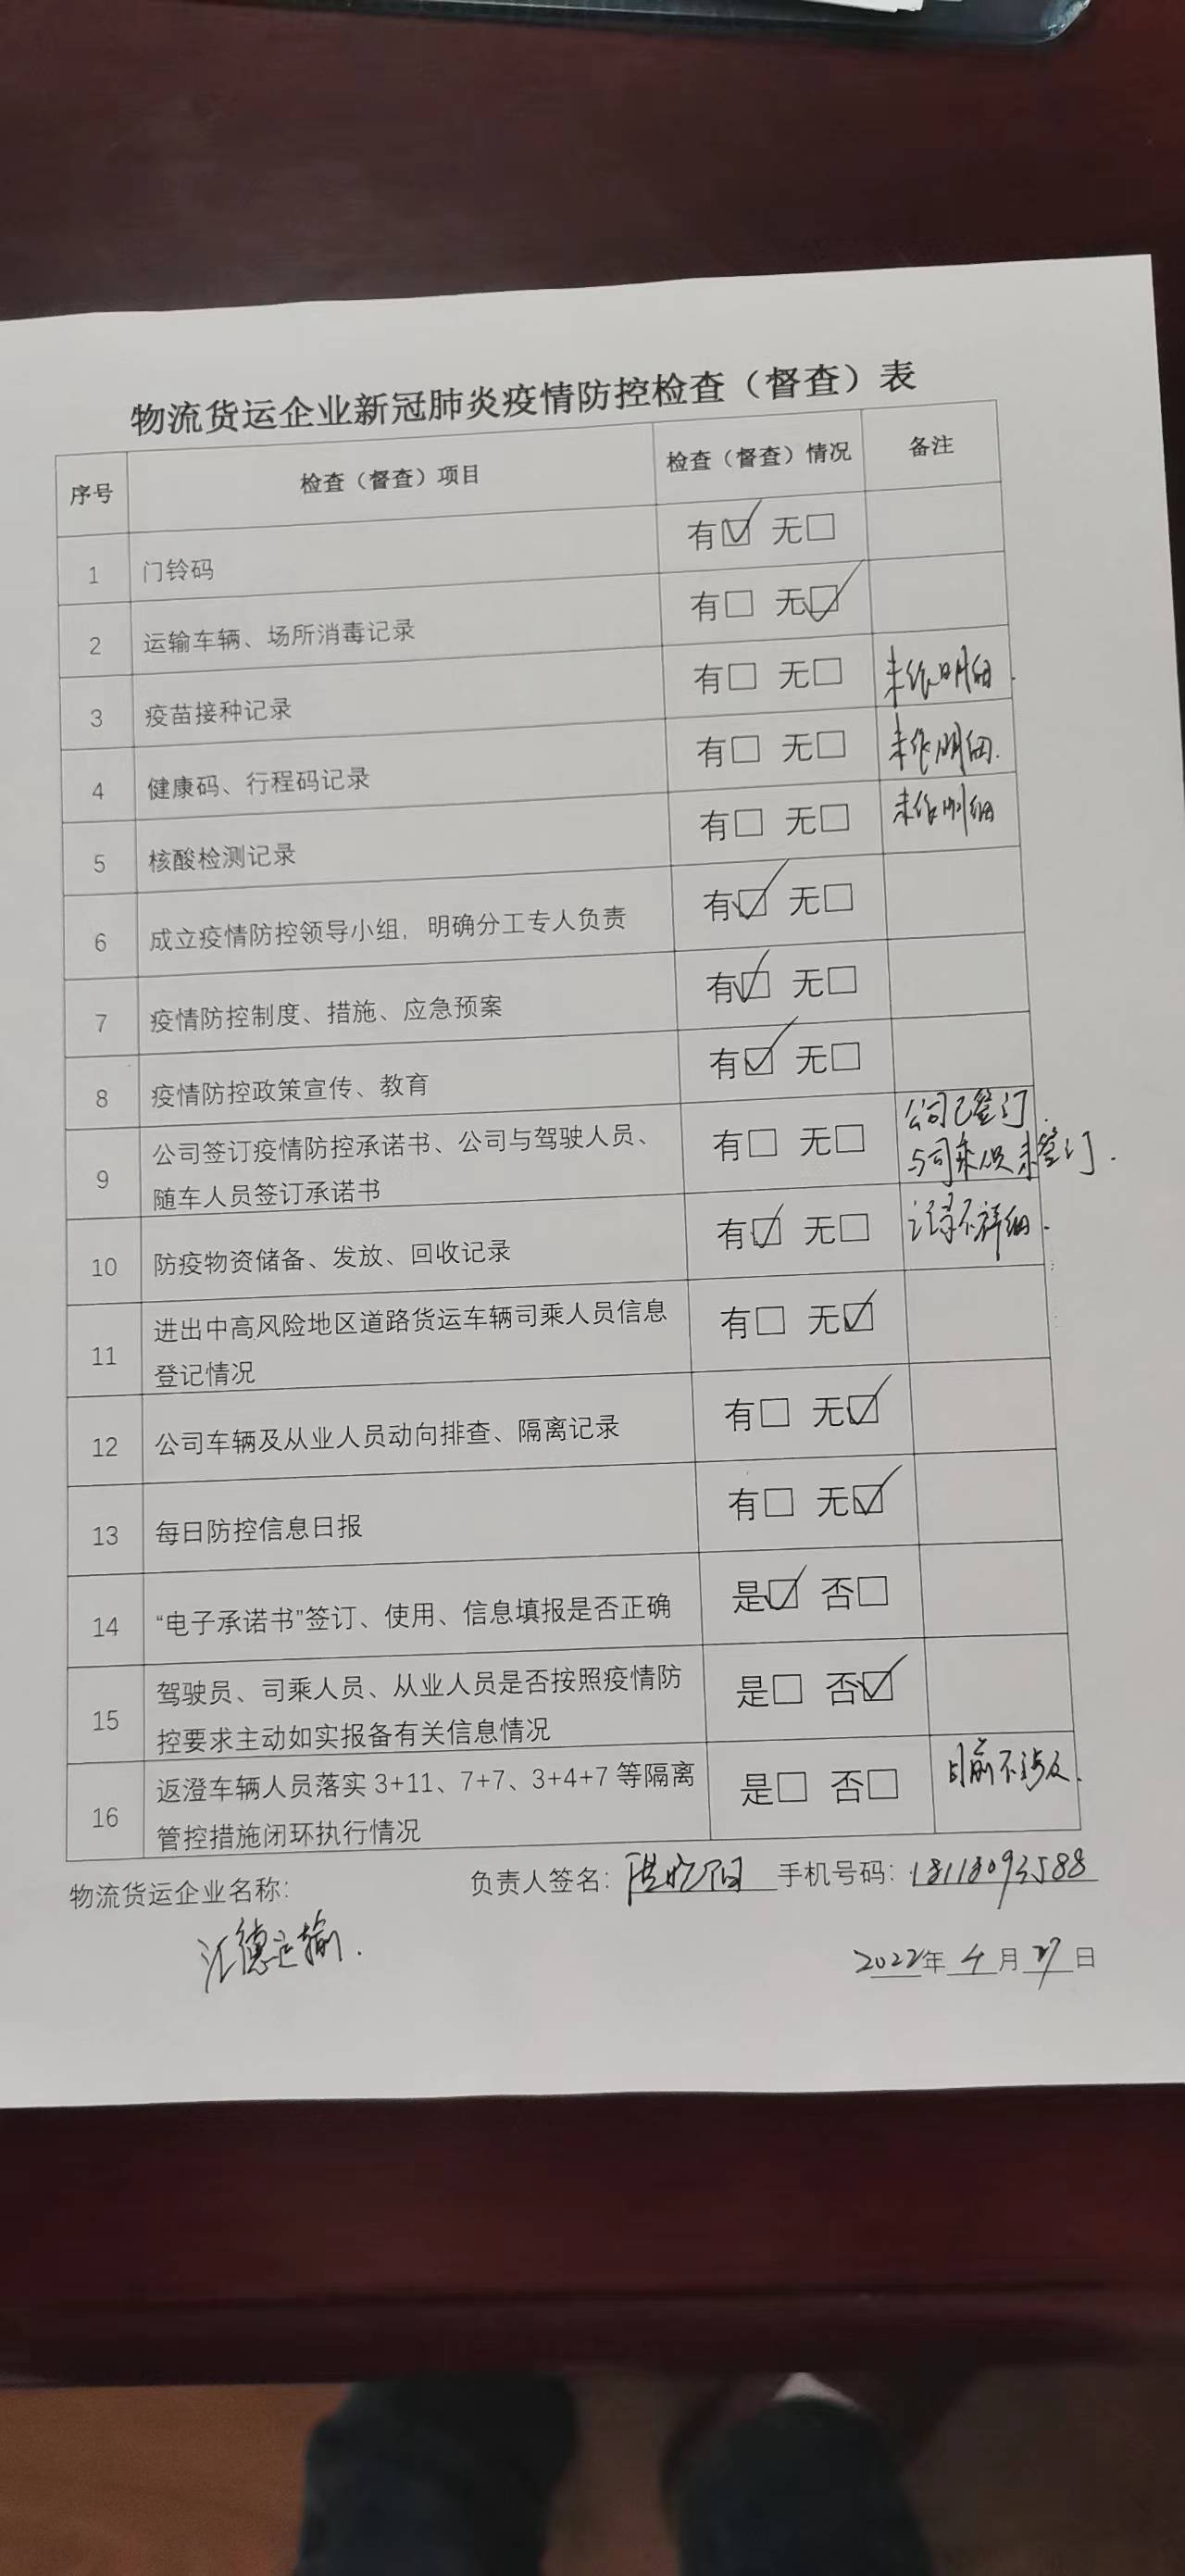 物流货运企业新冠肺炎疫情防控检查（督查）表
序号 检查（督查）项目 检查（督查）情况 备注
1 门铃码 有☑ 无□
2 运输车辆、场所消毒记录 有□ 无☑
3 疫苗接种记录 有□ 无□ 未作明细.
4 健康码、行程码记录 有□ 无□ 未作明细.
5 核酸检测记录 有□ 无□ 未作明细
6 成立疫情防控领导小组，明确分工专人负责 有☑ 无□
7 疫情防控制度、措施、应急预案 有☑ 无□
8 疫情防控政策宣传、教育 有☑ 无□
9 公司签订疫情防控承诺书、公司与驾驶人员、 有□ 无□ 公司已签订.
随车人员签订承诺书 与司乘人员未签订.
10 防疫物资储备、发放、回收记录 有☑ 无□ 记录不详细.
11 进出中高风险地区道路货运车辆司乘人员信息 有□ 无☑
登记情况
12 公司车辆及从业人员动向排查、隔离记录 有□ 无☑
13 每日防控信息日报 有□ 无☑
14 “电子承诺书”签订、使用、信息填报是否正确 是☑ 否□
15 驾驶员、司乘人员、从业人员是否按照疫情防 是□ 否☑
控要求主动如实报备有关信息情况
16 返澄车辆人员落实 3+11、7+7、3+4+7 等隔离 是□ 否□ 目前不涉及.
管控措施闭环执行情况
物流货运企业名称： 负责人签名： 手机号码：18118093588
汇德运输.
2022年 4 月 27 日